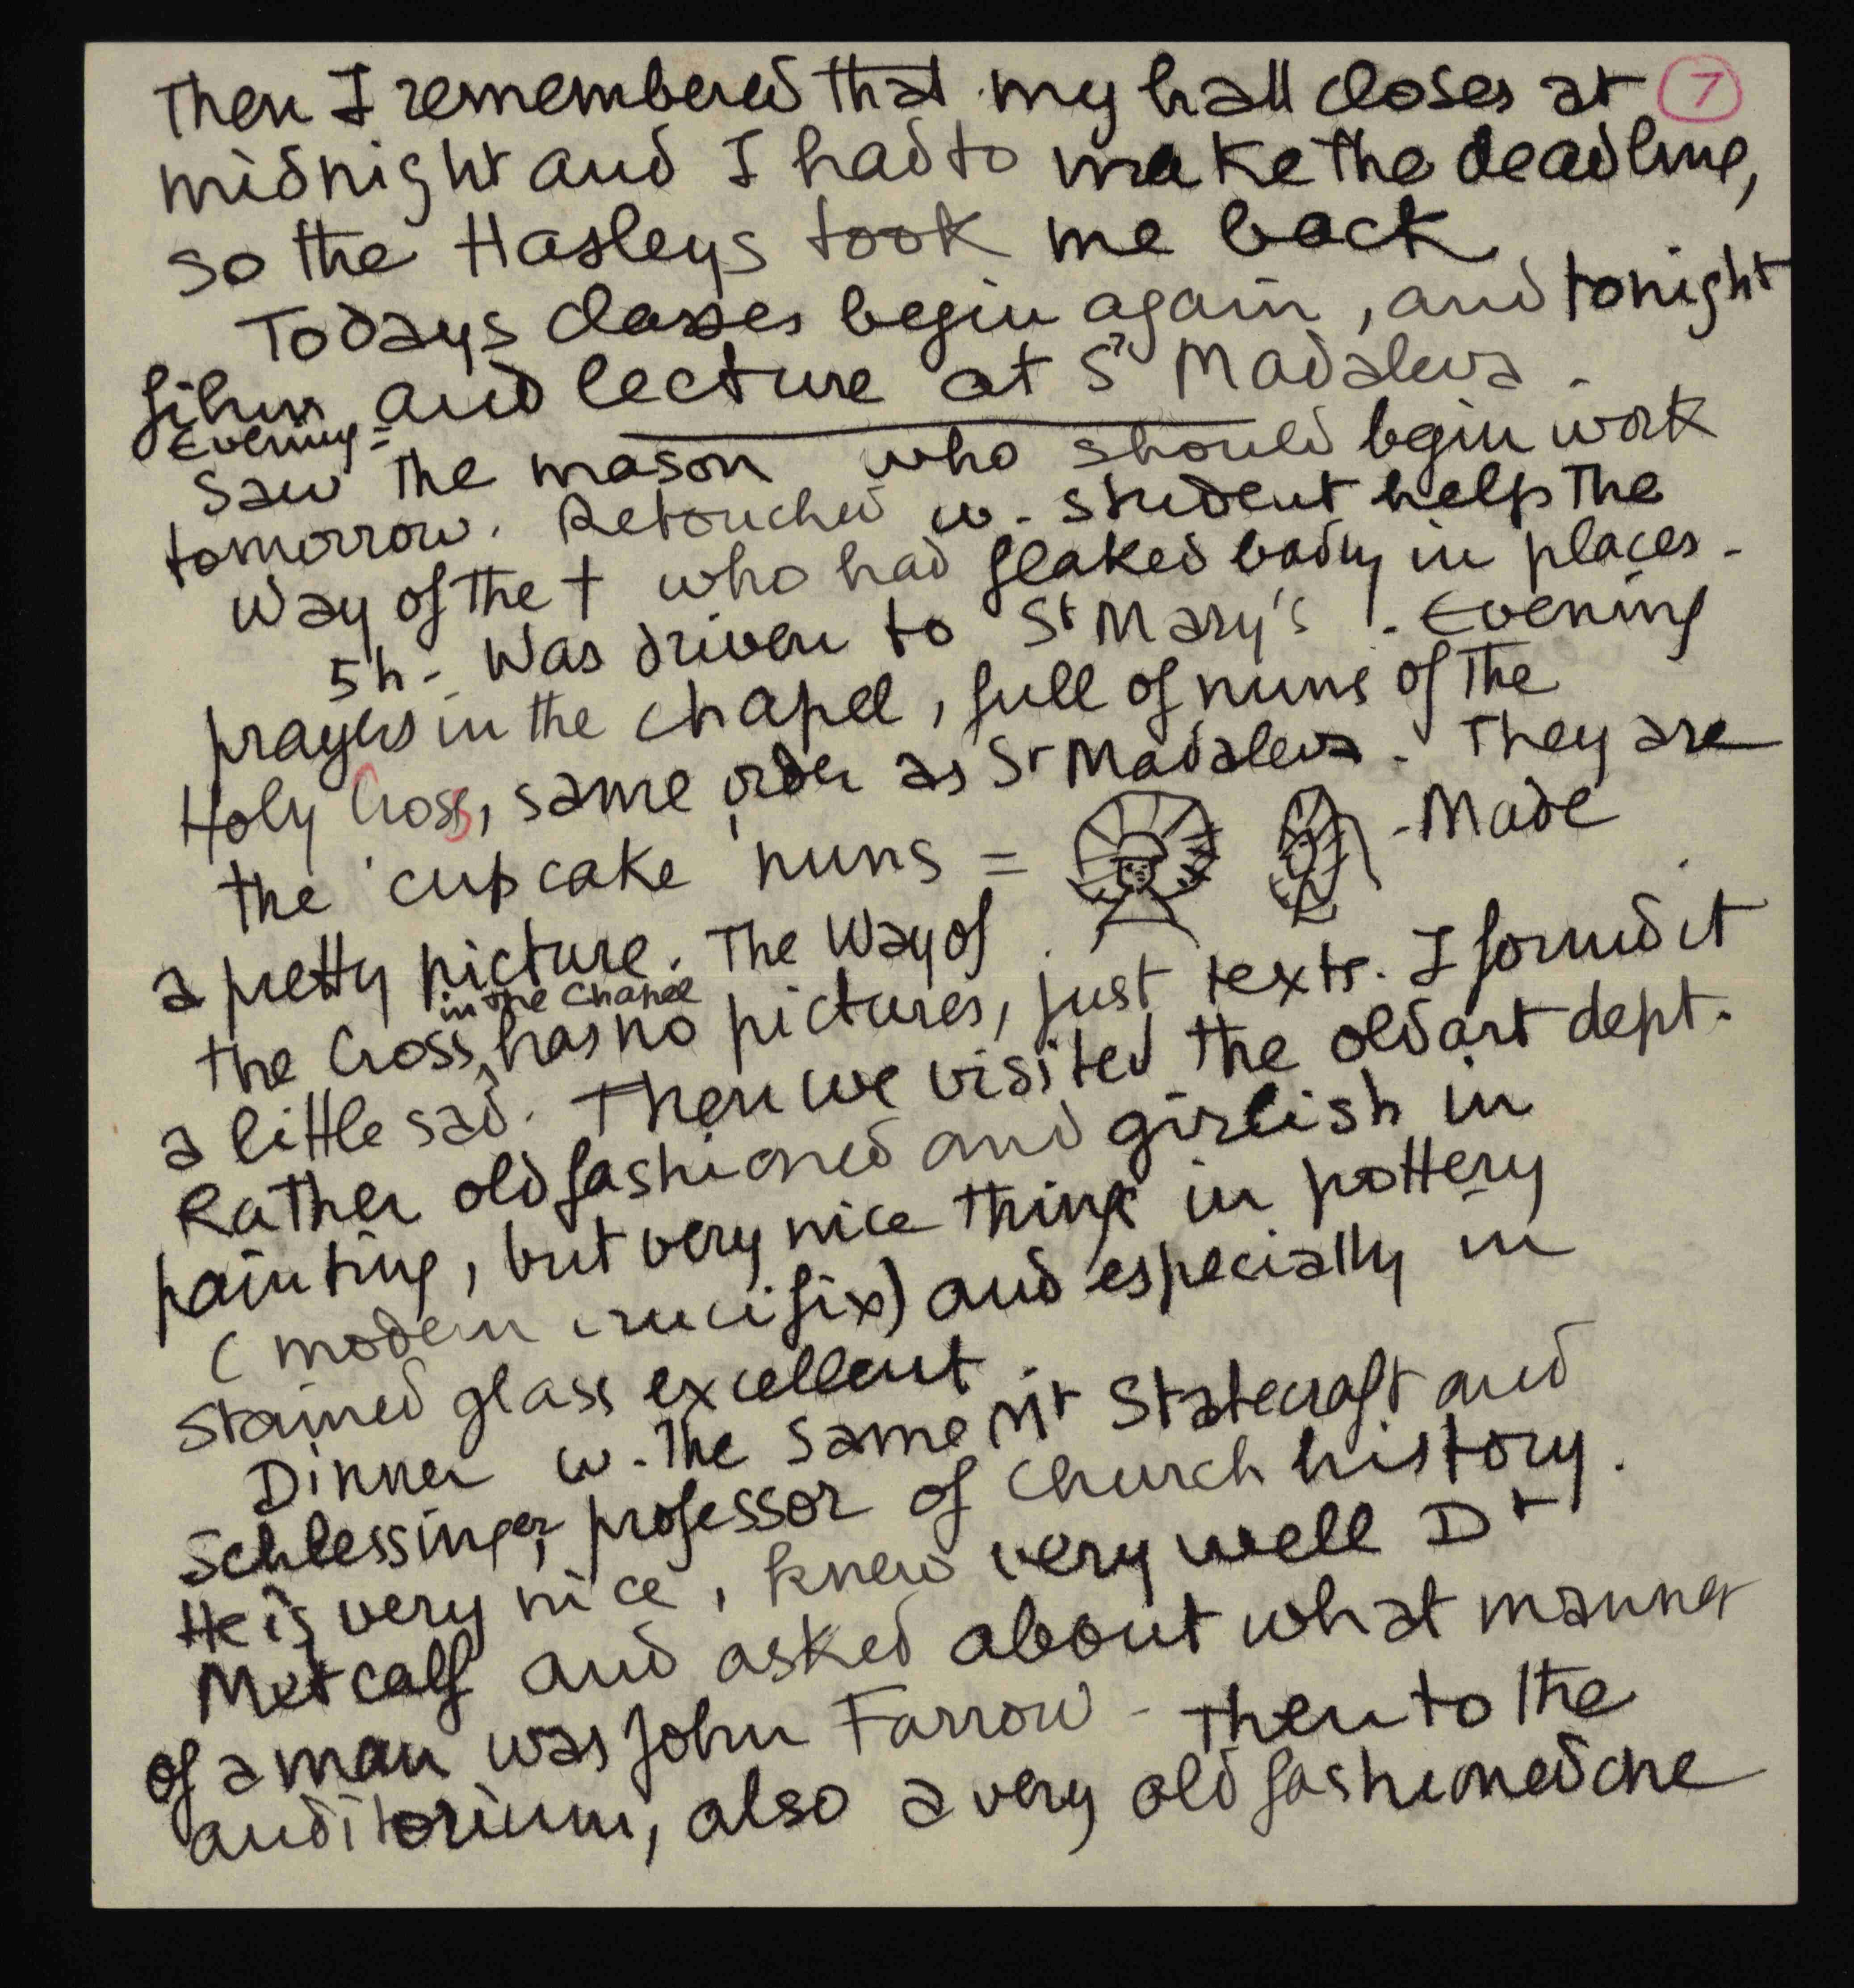 Then I remembered that my hall closes at 7
midnight and I had to make the deadline,
so the Hasleys took me back.
Todays classes begin again, and tonight
film and lecture at Sr Madaleva.
Evening =
Saw the mason who should begin work
tomorrow. Retouched w. student help the
Way of the † who had flaked badly in places -
5h - Was driven to St Mary's. Evening
prayers in the chapel, full of nuns of the
Holy Cross, same order as Sr Madaleva. They are
the 'cupcake' nuns = - Made
a pretty picture. The Way of
in the Chapel
the Cross, has no pictures, just texts. I found it
a little sad. Then we visited the old art dept.
Rather old fashioned and girlish in
painting, but very nice things in pottery
(modern crucifix) and especially in
stained glass excellent.
Dinner w. the same Mr Statecraft and
Schlessinger, professor of Church history.
He is very nice, knew very well Dr
Metcalf and asked about what manner
of a man was John Farrow - Then to the
auditorium, also a very old fashioned one